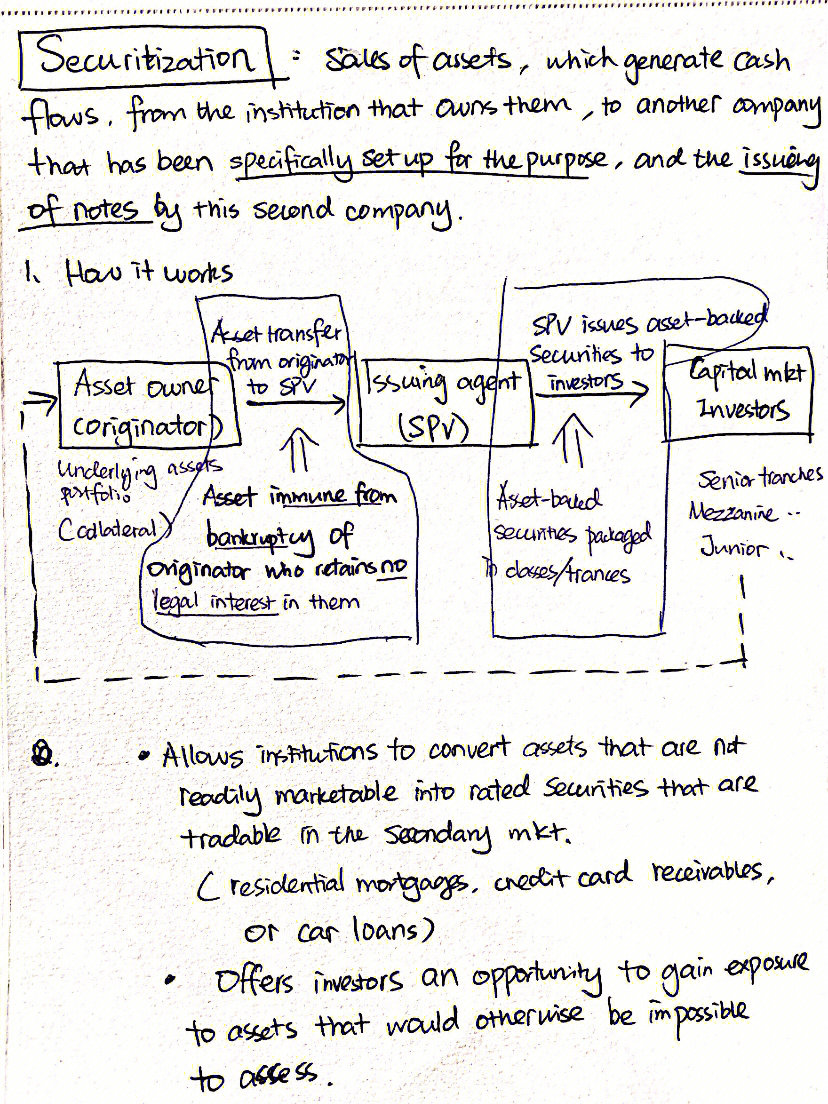 Securitization : Sales of assets, which generate cash
flows, from the institution that owns them, to another company
that has been specifically set up for the purpose, and the issuing
of notes by this second company.
1. How it works
Asset transfer
from originator
to SPV
SPV issues asset-backed
securities to
investors
Asset owner
(originator)
Issuing agent
(SPV)
Capital mkt
Investors
Underlying assets
portfolio
(collateral)
Asset immune from
bankruptcy of
originator who retains no
legal interest in them
Asset-backed
securities packaged
in classes/trances
Senior tranches
Mezzanine ..
Junior ..
2. • Allows institutions to convert assets that are not
readily marketable into rated securities that are
tradable in the secondary mkt.
( residential mortgages, credit card receivables,
or car loans)
• Offers investors an opportunity to gain exposure
to assets that would otherwise be impossible
to assess.